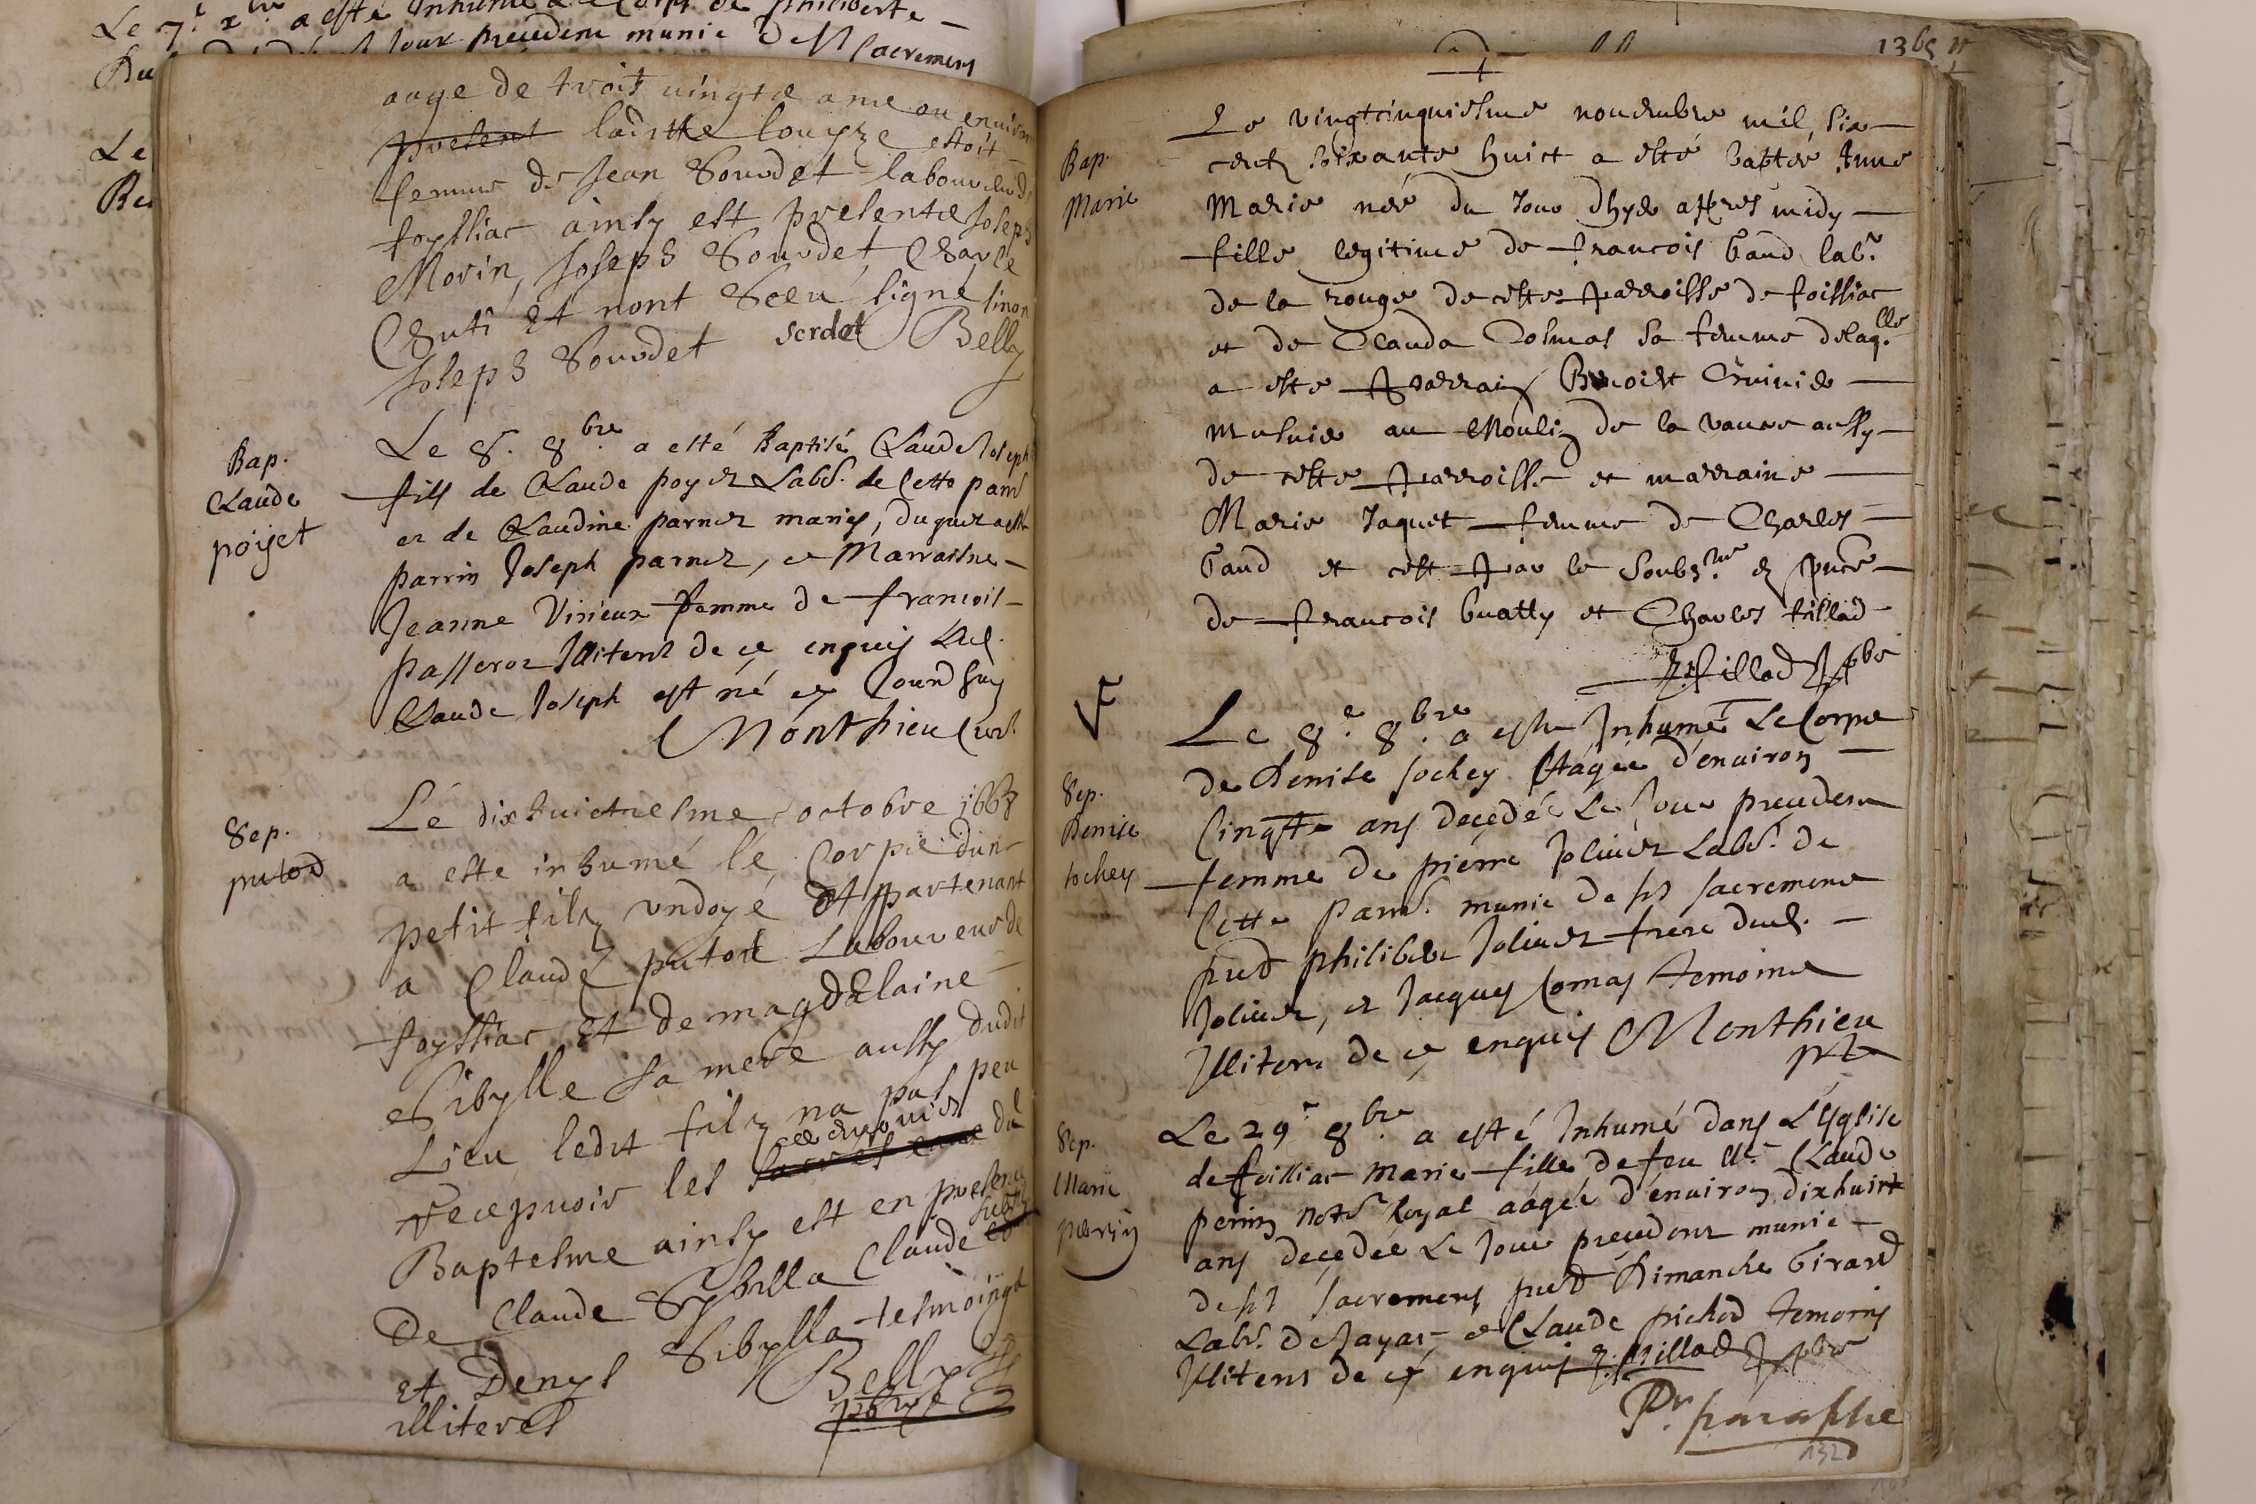 Le 7.e xbre a esté Inhumé Le Corps de philiberte
jour precedent munie de ses sacremens
Le
aage de trois vingts ans ou environ
present laditte Louyze estoit
femme de Jean Sourdet laboureur de
foyssiac ainsy est presente Joseph
Morin, Joseph Sourdet Charle
Chuti et nont sceu signé sinon
Joseph Sourdet serdet Belly
Bap.
Claude
poyet
Le 8. 8bre a esté Baptisé Claude Joseph
fils de Claude poyet Labr. de Cette parr
et de Claudine parnet mariés, duquel a esté
parrin Joseph parnet, et Marraisne
Jeanne Vivieux femme de francois
passerat Illiterés de ce enquis Led.
Claude Joseph est né ce Jourdhuy
Monthieu Curé
Sep.
putod
Le dixhuictiesme octobre 1668
a esté inhumé le Corps dun
petit filz undoyé et appartenant
a Claude putod Laboureur de
foyssiac et de magdelaine
Sibylle sa mere aussy dudit
Lieu ledit filz na pas peu
recepvoir les ceremonies du
Baptesme ainsy est en presence
De Claude Sybilla Claude
et Denys Sibylla tesmoings
illiterés Belly
pbre
1365
Bap.
Marie
Le vingtcinquiesme novembre mil six
centz soixante huict a esté baptée Anne
Marie née du jour dhyer apres midy
fille legitime de francois Gaud labr.
de la rouge de cette parroisse de foissiac
et de Clauda Colmas sa femme delaqlle
a esté parrain Benoist Crivie
musnier au Moulin de la vavre aussy
de cette parroisse et marraine
Marie Jaquet femme de Charles
Gaud et cest par le soubzne en pnce
de francois buatty et Charles fillod
fillod pbre
Le 8e. 8bre. a esté Inhumé Le Corps
Sep.
Denise
Jochey
de Denise Jochey Aagée d'environ
Cinqte ans decedée Le Jour precedent
femme de pierre Jolivet Labr. de
Cette parr. munie de ses sacremens
pnt philibert Jolivet frere dud.
Jolivet, et Jacques Comas temoins
Illiterés de ce enquis Monthieu
Sep.
Marie
perrin
Le 29e 8bre. a esté Inhumé dans L'Eglise
de foissiac Marie fille de feu Me Claude
perrin Notre Royal aagée d'environ dixhuict
ans decedée Le Jour precedent munie
de ses sacremens pnt Dimanche Girard
Labr. de Jayat et Claude pichod temoins
Illiterés de ce enquis fillod pbre
Pr. paraphe
132